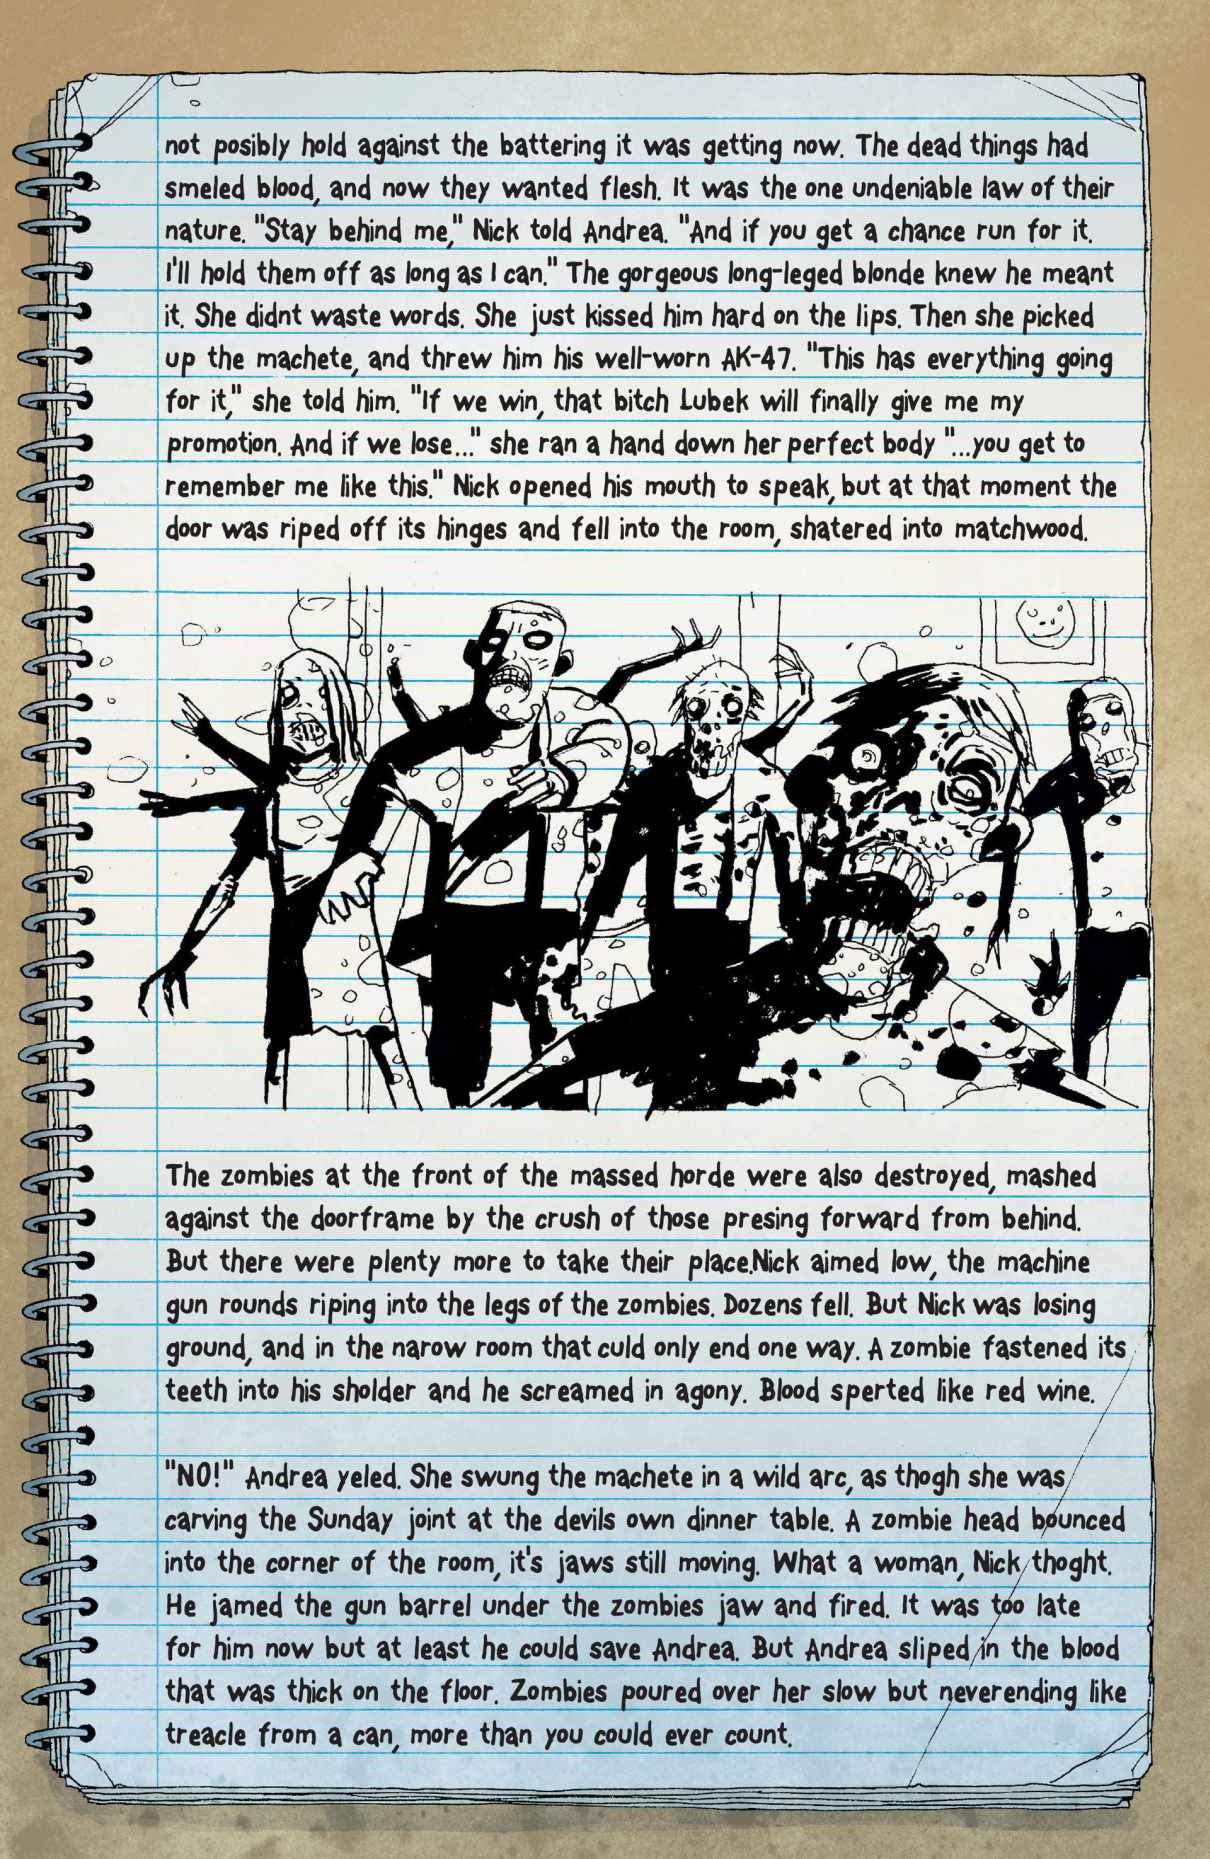 not posibly hold against the battering it was getting now. The dead things had
smeled blood, and now they wanted flesh. It was the one undeniable law of their
nature. "Stay behind me," Nick told Andrea. "And if you get a chance run for it.
I'll hold them off as long as I can." The gorgeous long-leged blonde knew he meant
it. She didnt waste words. She just kissed him hard on the lips. Then she picked
up the machete, and threw him his well-worn AK-47. "This has everything going
for it," she told him. "If we win, that bitch Lubek will finally give me my
promotion. And if we lose..." she ran a hand down her perfect body "...you get to
remember me like this." Nick opened his mouth to speak, but at that moment the
door was riped off its hinges and fell into the room, shatered into matchwood.
The zombies at the front of the massed horde were also destroyed, mashed
against the doorframe by the crush of those presing forward from behind.
But there were plenty more to take their place.Nick aimed low, the machine
gun rounds riping into the legs of the zombies. Dozens fell. But Nick was losing
ground, and in the narow room that culd only end one way. A zombie fastened its
teeth into his sholder and he screamed in agony. Blood sperted like red wine.
"NO!" Andrea yeled. She swung the machete in a wild arc, as thogh she was
carving the Sunday joint at the devils own dinner table. A zombie head bounced
into the corner of the room, it's jaws still moving. What a woman, Nick thoght.
He jamed the gun barrel under the zombies jaw and fired. It was too late
for him now but at least he could save Andrea. But Andrea sliped in the blood
that was thick on the floor. Zombies poured over her slow but neverending like
treacle from a can, more than you could ever count.